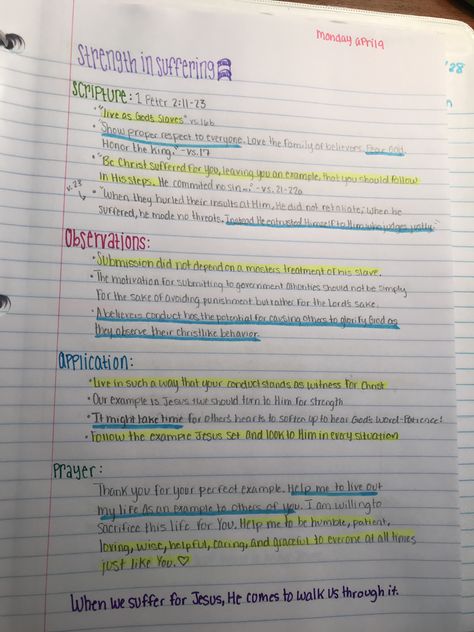 Monday April 9
'28
Strength in Suffering
Scripture: 1 Peter 2:11-23
• "Live as God's slaves" vs. 16b
• "Show proper respect to everyone. Love the family of believers. Fear God.
Honor the King." -vs.17
• "Be Christ suffered for you, leaving you an example, that you should follow
in His steps. He commited no sin..." -vs. 21-22a
v.23
• "When they hurled their insults at Him, He did not retaliate; when he
suffered, he made no threats. Instead He entrusted Himself to Him who judges justly."
Observations:
• Submission did not depend on a masters treatment of his slave.
• The motivation for submitting to government athorities should not be simply
for the sake of avoiding punishment but rather for the Lord's sake.
• A believers conduct has the potential for causing others to glorify God as
they observe their christlike behavior.
Application:
• Live in such a way that your conduct stands as witness for Christ
• Our example is Jesus & we should turn to Him for strength
• It might take time for others hearts to soften up to hear God's Word-Patience!
• Follow the example Jesus set and look to Him in every situation
Prayer:
Thank you for your perfect example. Help me to live out
my life as an example to others of you. I am willing to
sacrifice this life for You. Help me to be humble, patient,
loving, wise, helpful, caring, and graceful to everone at all times
just like You. ♡
When we suffer for Jesus, He comes to walk us through it.